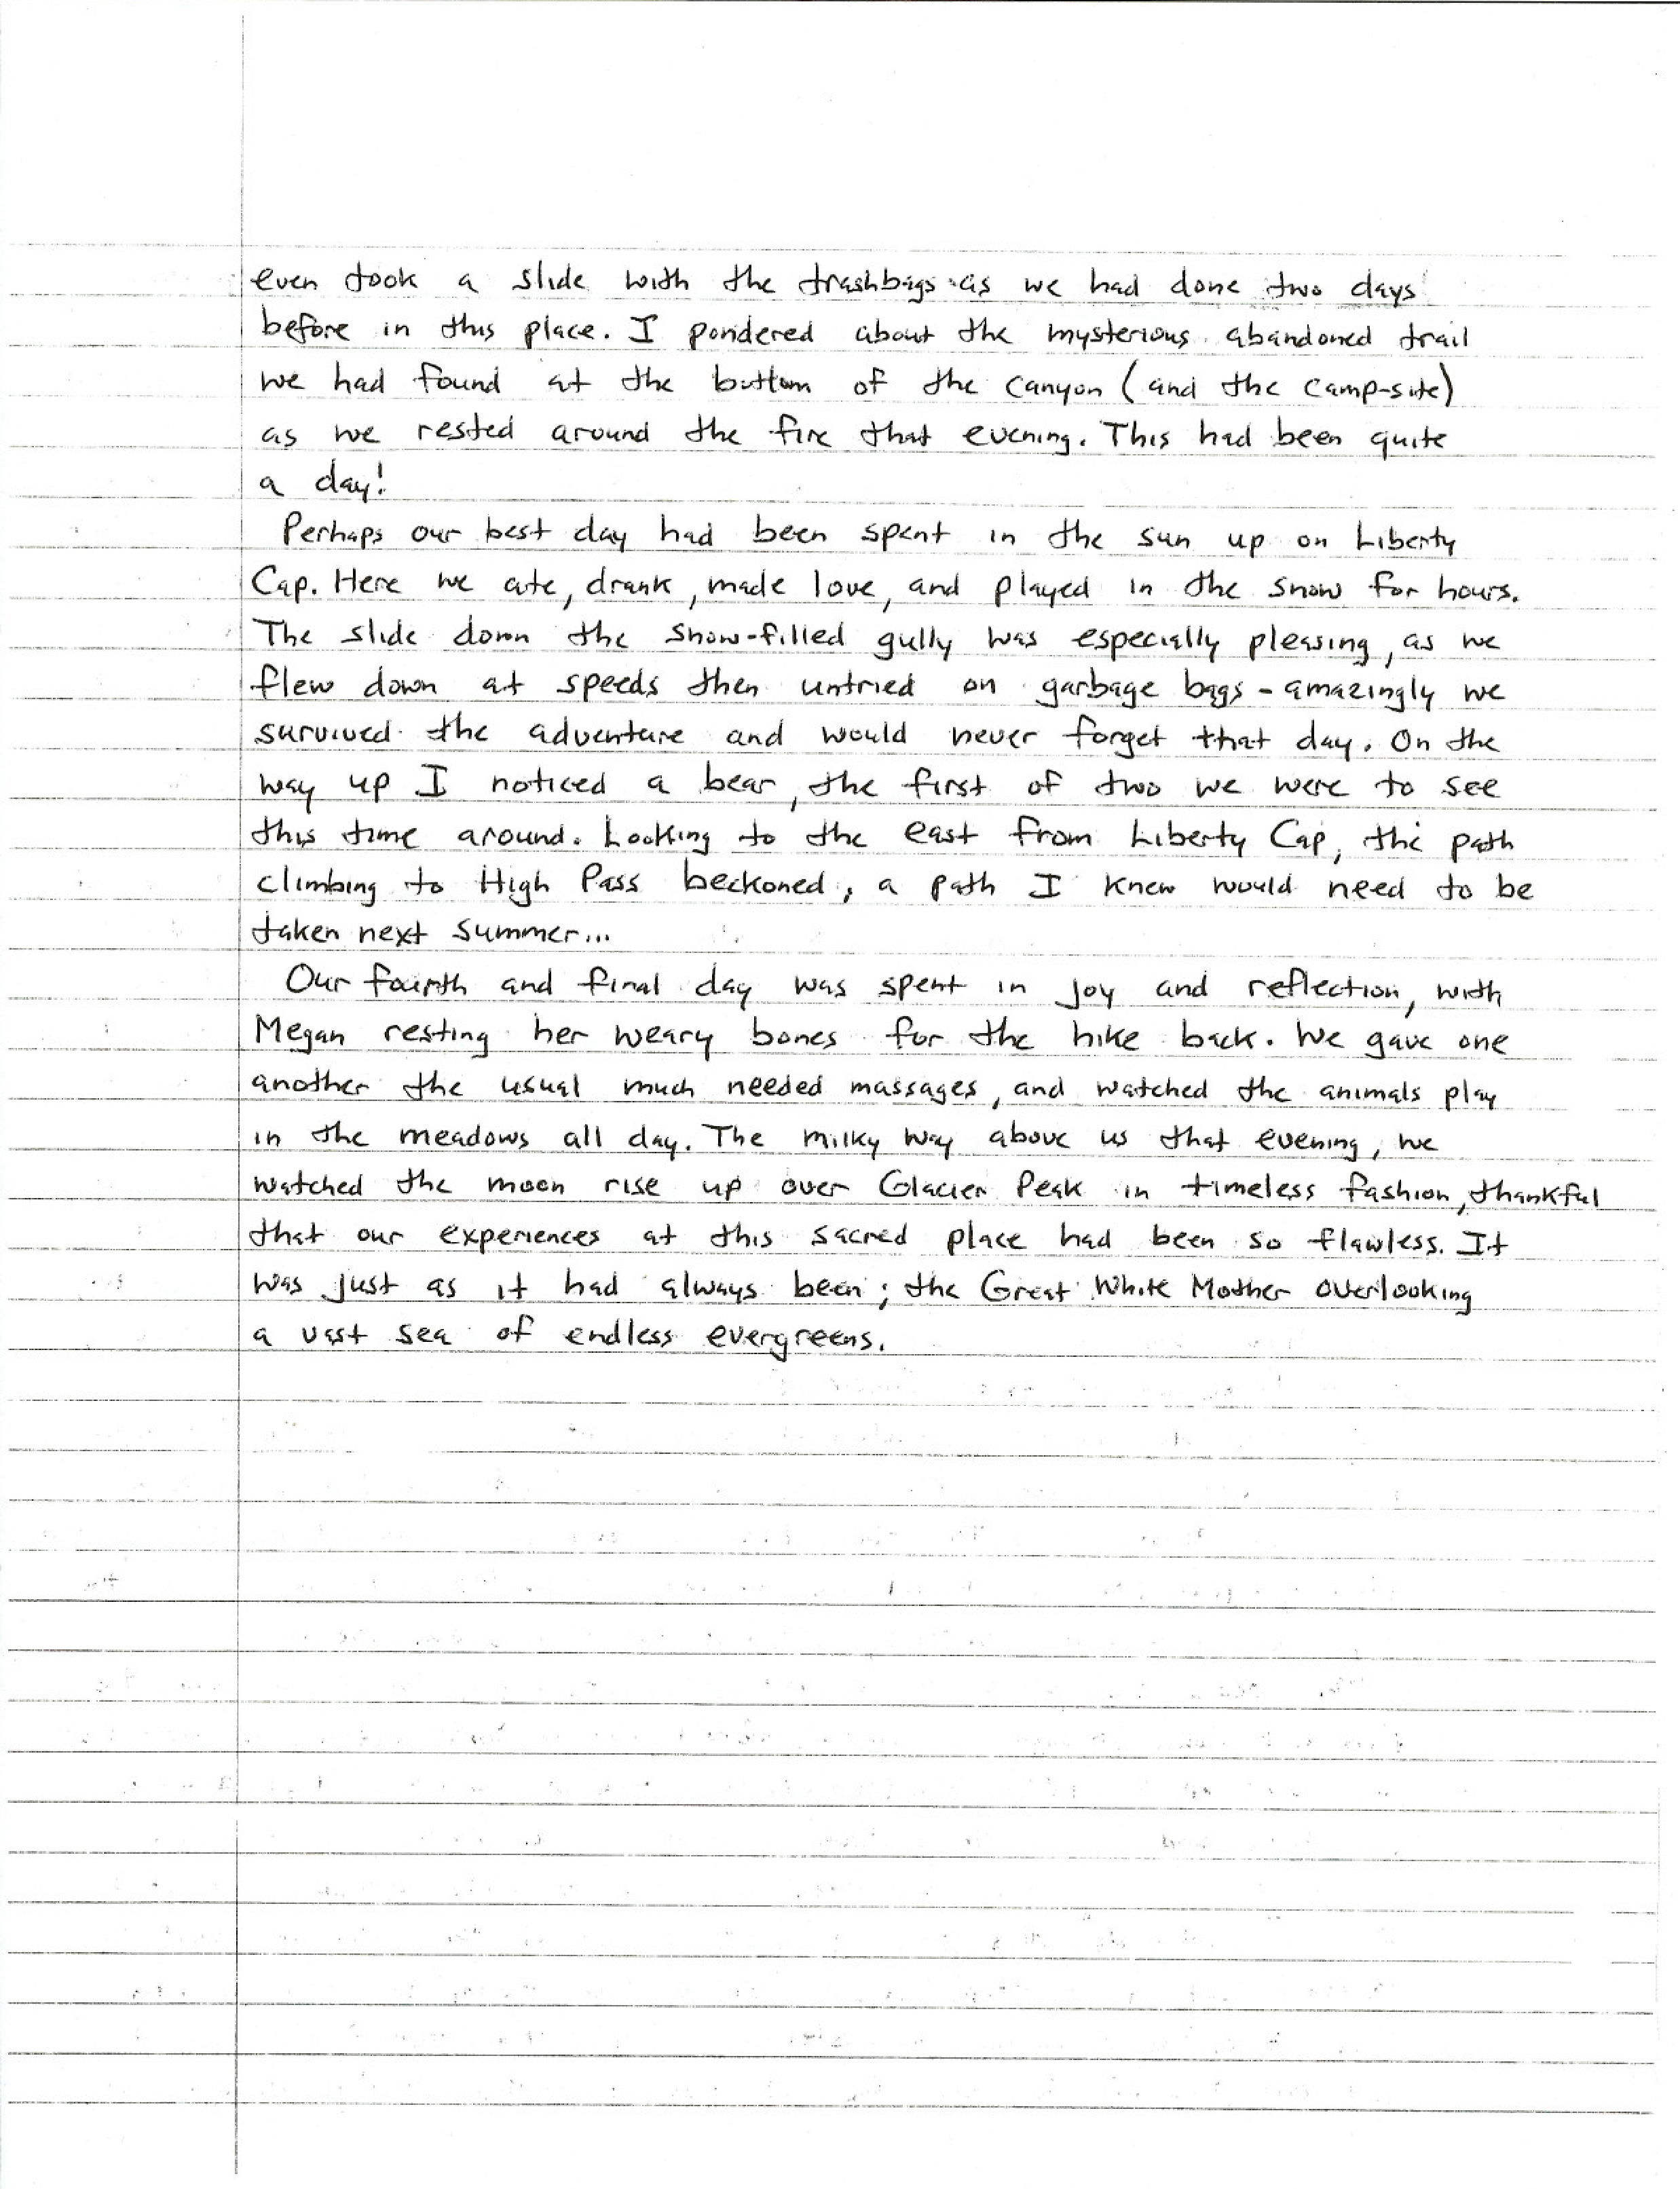 even took a slide with the trashbags as we had done two days
before in this place. I pondered about the mysterious abandoned trail
we had found at the bottom of the canyon (and the camp-site)
as we rested around the fire that evening. This had been quite
a day!
Perhaps our best day had been spent in the sun up on Liberty
Cap. Here we ate, drank, made love, and played in the snow for hours.
The slide down the snow-filled gully was especially pleasing, as we
flew down at speeds then untried on garbage bags - amazingly we
survived the adventure and would never forget that day. On the
way up I noticed a bear, the first of two we were to see
this time around. Looking to the east from Liberty Cap, the path
climbing to High Pass beckoned, a path I knew would need to be
taken next summer...
Our fourth and final day was spent in joy and reflection, with
Megan resting her weary bones for the hike back. We gave one
another the usual much needed massages, and watched the animals play
in the meadows all day. The milky way above us that evening, we
watched the moon rise up over Glacier Peak in timeless fashion, thankful
that our experiences at this sacred place had been so flawless. It
was just as it had always been; the Great White Mother overlooking
a vast sea of endless evergreens.